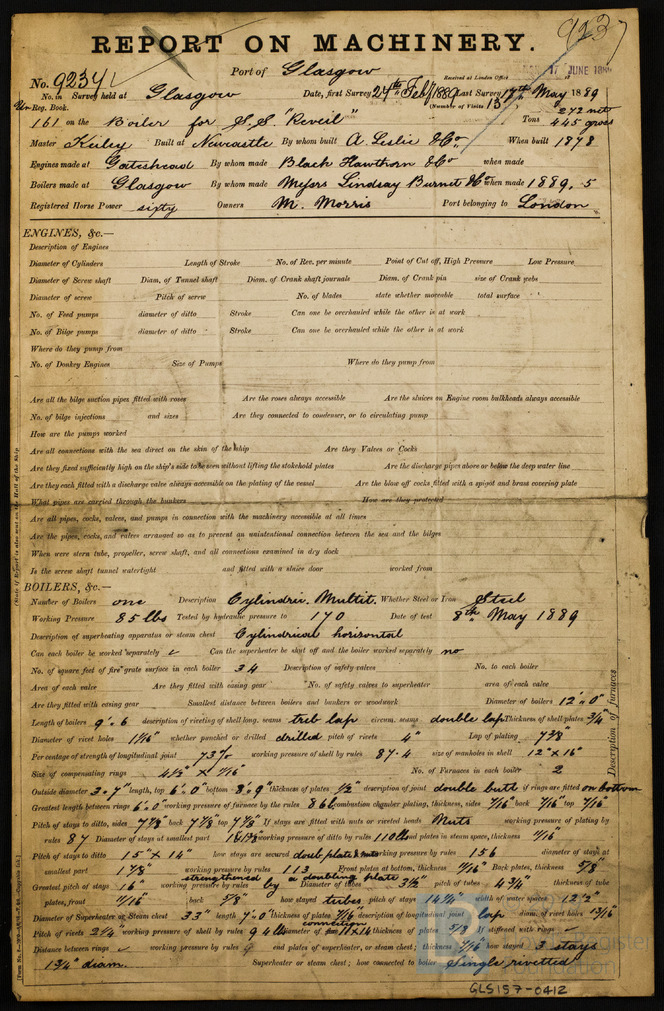 923
REPORT ON MACHINERY.
No. 9234 Port of Glasgow Received at London Office 17 JUNE
No. in Survey held at Glasgow Date, first Survey 24th Feb/1889 Last Survey 17th May 1889
Reg. Book. (Number of Visits 13
161 on the Boiler for S.S. "Reveil" Tons 272 nett 445 gross
Master Keiley Built at Newcastle By whom built A. Leslie & Co When built 1878
Engines made at Gateshead By whom made Black Hawthorn & Co when made
Boilers made at Glasgow By whom made Messrs Lindsay Burnet & Co when made 1889.5
Registered Horse Power sixty Owners M. Morris Port belonging to London
ENGINES, &c.—
Description of Engines
Diameter of Cylinders Length of Stroke No. of Rev. per minute Point of Cut off, High Pressure Low Pressure
Diameter of Screw shaft Diam. of Tunnel shaft Diam. of Crank shaft journals Diam. of Crank pin size of Crank webs
Diameter of screw Pitch of screw No. of blades state whether moveable total surface
No. of Feed pumps diameter of ditto Stroke Can one be overhauled while the other is at work
No. of Bilge pumps diameter of ditto Stroke Can one be overhauled while the other is at work
Where do they pump from
No. of Donkey Engines Size of Pumps Where do they pump from
Are all the bilge suction pipes fitted with roses Are the roses always accessible Are the sluices on Engine room bulkheads always accessible
No. of bilge injections and sizes Are they connected to condenser, or to circulating pump
How are the pumps worked
Are all connections with the sea direct on the skin of the ship Are they Valves or Cocks
Are they fixed sufficiently high on the ship's side to be seen without lifting the stokehold plates Are the discharge pipes above or below the deep water line
Are they each fitted with a discharge valve always accessible on the plating of the vessel Are the blow off cocks fitted with a spigot and brass covering plate
What pipes are carried through the bunkers How are they protected
Are all pipes, cocks, valves, and pumps in connection with the machinery accessible at all times
Are the pipes, cocks, and valves arranged so as to prevent an unintentional connection between the sea and the bilges
When were stern tube, propeller, screw shaft, and all connections examined in dry dock
Is the screw shaft tunnel watertight and fitted with a sluice door worked from
BOILERS, &c.—
Number of Boilers one Description Cylindrl. Multit. Whether Steel or Iron Steel
Working Pressure 85 lbs Tested by hydraulic pressure to 170 Date of test 8th May 1889
Description of superheating apparatus or steam chest Cylindrical horizontal
Can each boiler be worked separately ✓ Can the superheater be shut off and the boiler worked separately no
No. of square feet of fire grate surface in each boiler 34 Description of safety valves No. to each boiler
Area of each valve Are they fitted with easing gear No. of safety valves to superheater area of each valve
Are they fitted with easing gear Smallest distance between boilers and bunkers or woodwork Diameter of boilers 12'.0"
Length of boilers 9'.6 description of riveting of shell long. seams treb lap circum. seams double lap Thickness of shell plates 3/4"
Diameter of rivet holes 1 1/16" whether punched or drilled drilled pitch of rivets 4" Lap of plating 7 3/8
Per centage of strength of longitudinal joint 73% working pressure of shell by rules 87.4 size of manholes in shell 12" x 16"
Size of compensating rings 4 1/2" x 7/16" No. of Furnaces in each boiler 2
Outside diameter 3'.7" length, top 6'.0" bottom 8'.9" thickness of plates 1/2" description of joint double butt if rings are fitted on bottom
Greatest length between rings 6'.0" working pressure of furnace by the rules 86 lb combustion chamber plating, thickness, sides 7/16" back 7/16" top 7/16"
Pitch of stays to ditto, sides 7 7/8" back 7 7/8" top 7 7/8" If stays are fitted with nuts or riveted heads Nuts working pressure of plating by
rules 87 Diameter of stays at smallest part working pressure of ditto by rules 110 lbs end plates in steam space, thickness 11/16"
Pitch of stays to ditto 15" x 14" how stays are secured doub plate & nuts working pressure by rules 156 diameter of stays at
smallest part 1 7/8 working pressure by rules 113 Front plates at bottom, thickness 11/16" Back plates, thickness 5/8"
Greatest pitch of stays 16" working pressure by rules strengthened by a doubling plate Diameter of tubes 3 1/2" pitch of tubes 4 3/4" thickness of tube
plates, front 11/16" back 5/8" how stayed tubes pitch of stays 14 1/4" width of water spaces 12 1/2"
Diameter of Superheater or Steam chest 33" length 7'.0" thickness of plates 7/16 description of longitudinal joint lap diam. of rivet holes 13/16"
Pitch of rivets 2 1/4" working pressure of shell by rules thickness of plates 5/8 If stiffened with rings ✓
Distance between rings ✓ working pressure by rules end plates of superheater, or steam chest; thickness 7/16" how stayed 3 stays
1 3/4" diam. Superheater or steam chest; how connected to boiler Single rivetted
Description of furnaces
GLS157-0412